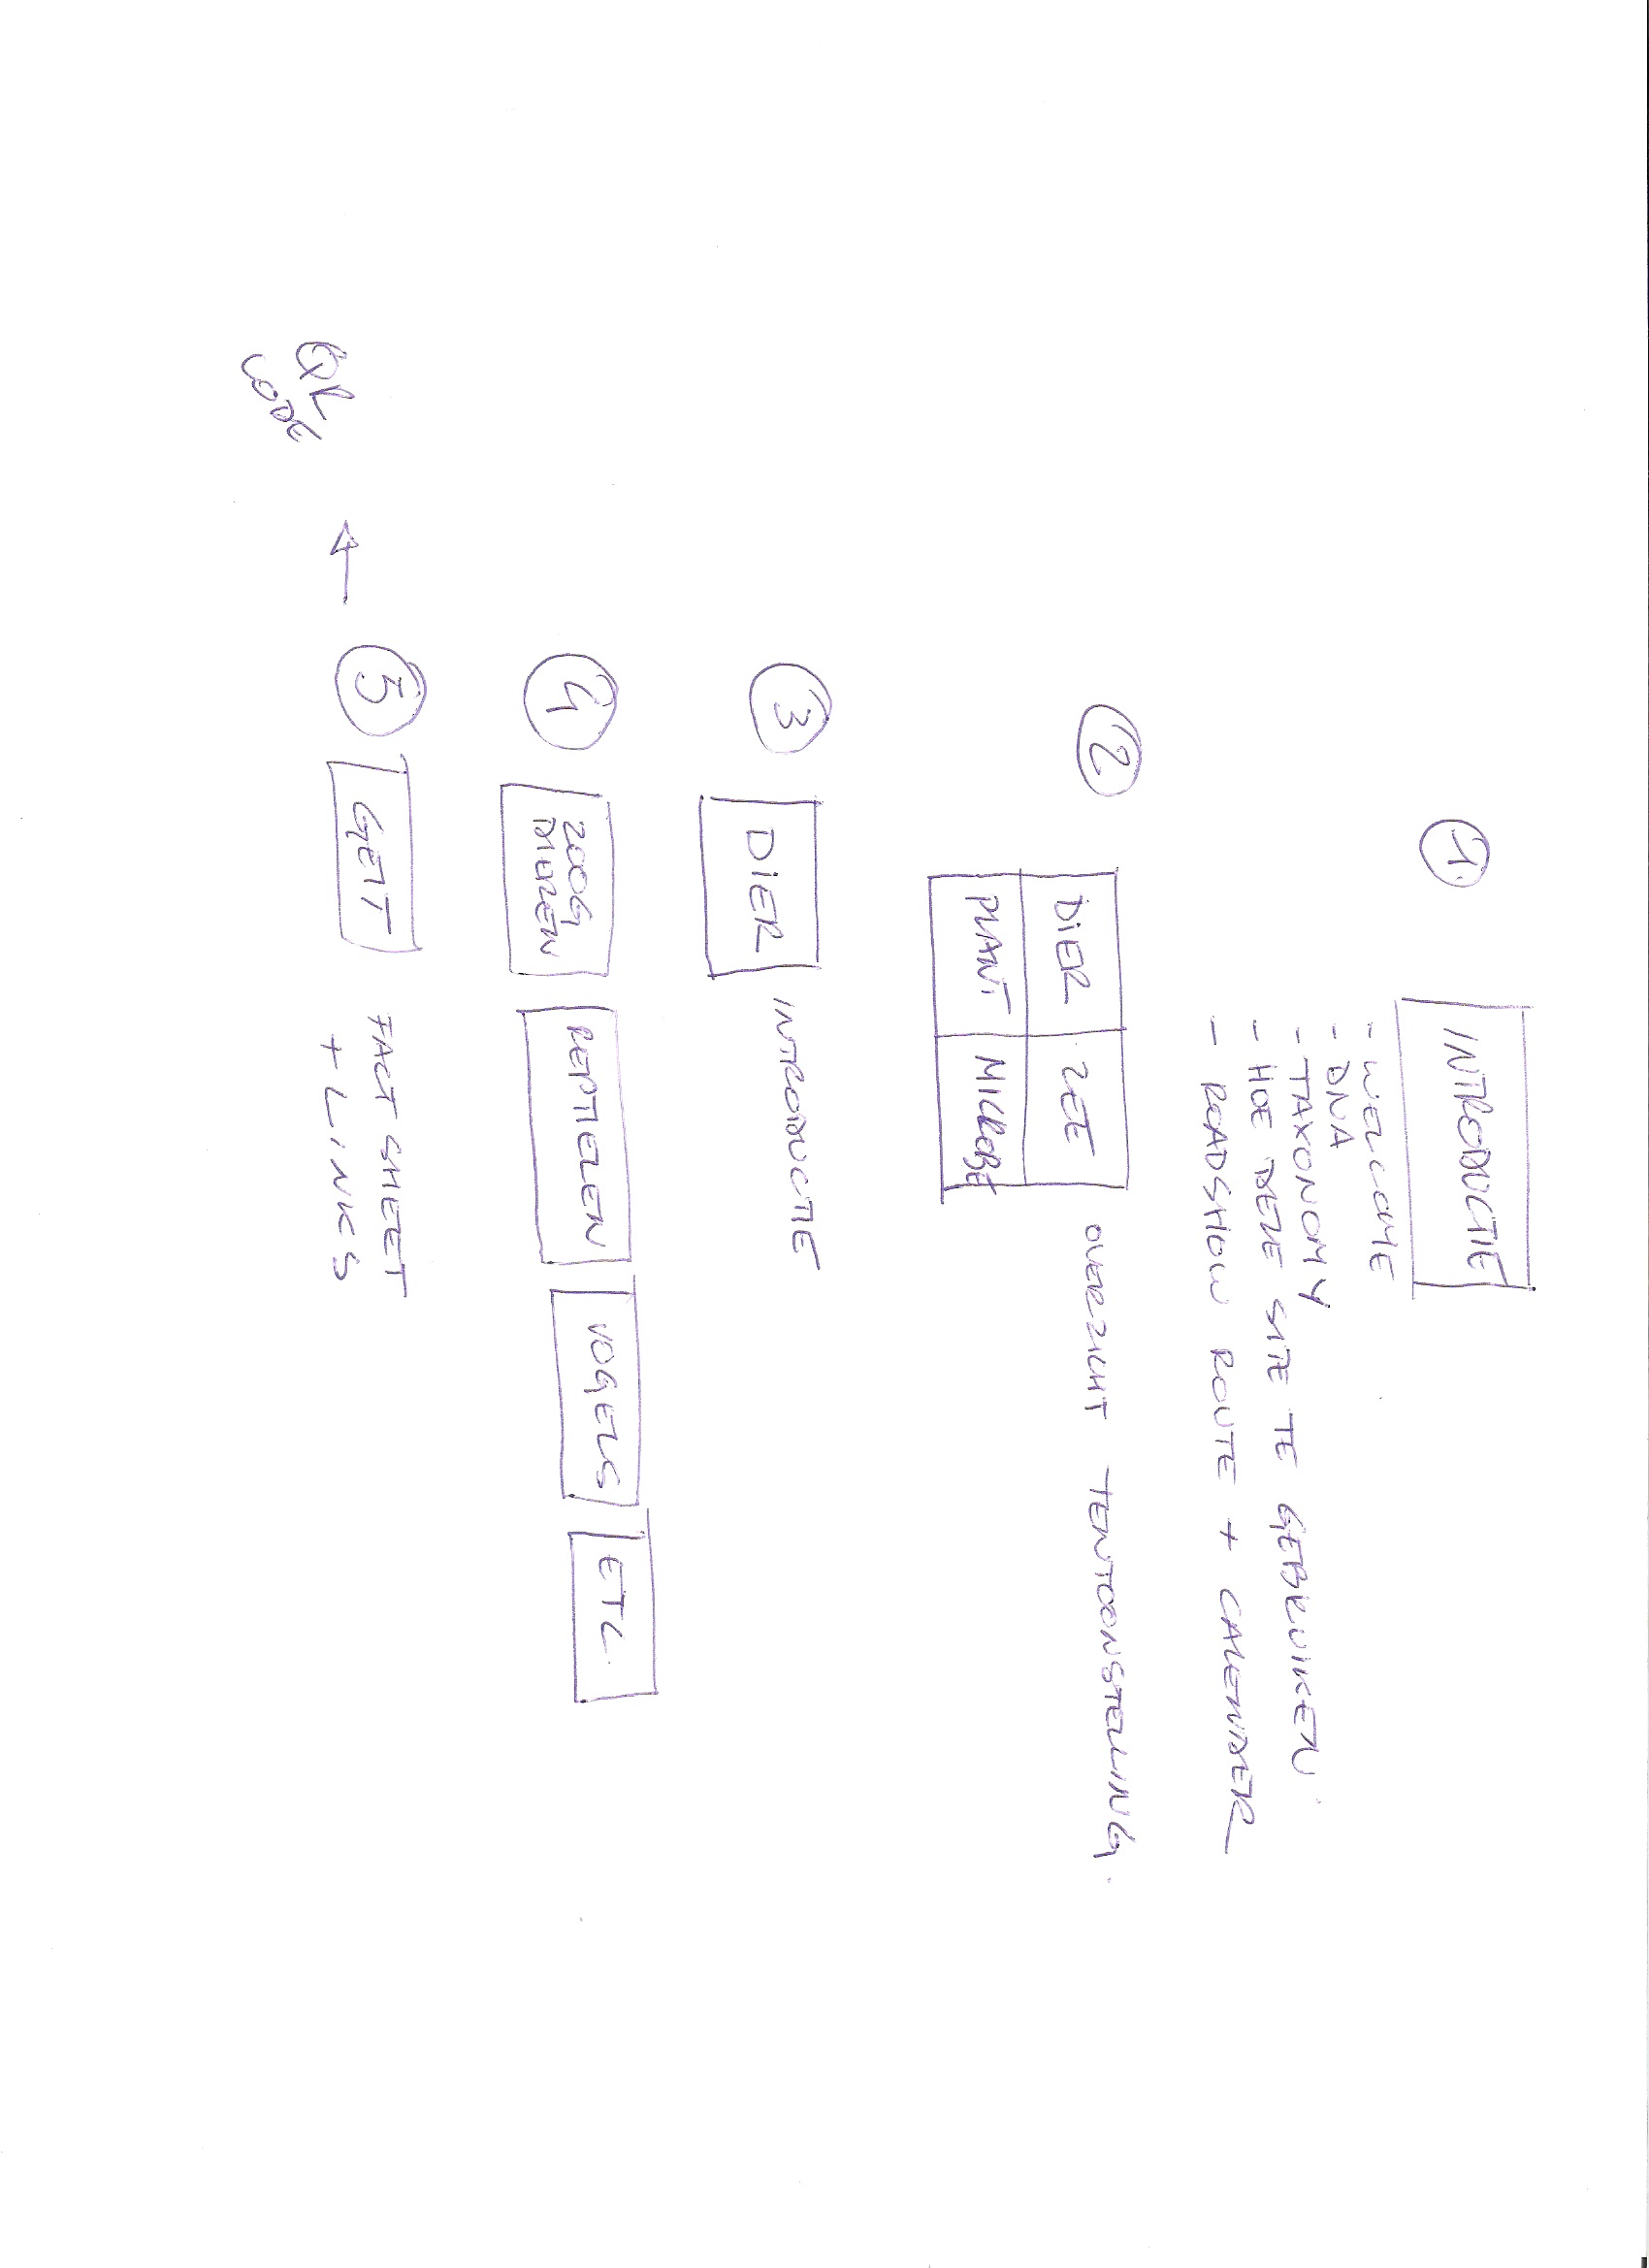 1.
INTRODUCTIE
- WELCOME
- DNA
- TAXONOMY
- HOE DEZE SITE TE GEBRUIKEN
- ROADSHOW ROUTE + CALENDER
2
DIER ZEE
PLANT MICROBE
OVERZICHT TENTOONSTELLING.
3
DIER
INTRODUCTIE
4
ZOOG
DIEREN
REPTIELEN
VOGELS
ETC.
5
GEIT
FACT SHEET
+ LINKS
QR
CODE